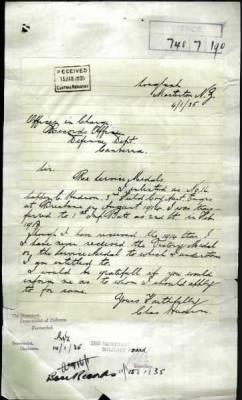 748 7 190
RECEIVED
15 JAN 1935
CENTRAL REGISTRY
Masterton N.Z.
4/1/35
Officer in Charge
Records Office
Defence Dept.
Canberra
Sir
Re Service Medals
I enlisted as No 16
Sapper C Hudson, 3rd Field Coy Aust Engrs
at Brisbane on August 1914 & was trans
ferred to Inf Batt as 2nd Lt in Feb
Though I have received the 1914 Star I
I have never received the Victory Medal
or the Service Medal to which I understand
I am entitled to.
I would be gratefull if you would
inform me as to whom I should apply
to for same.
Yours Faithfully
Chas Hudson
The Secretary,
Department of Defence.
Forwarded.
Secretariat,
Canberra.
14/1/35
THE SECRETARY
Base Records
15.1.35